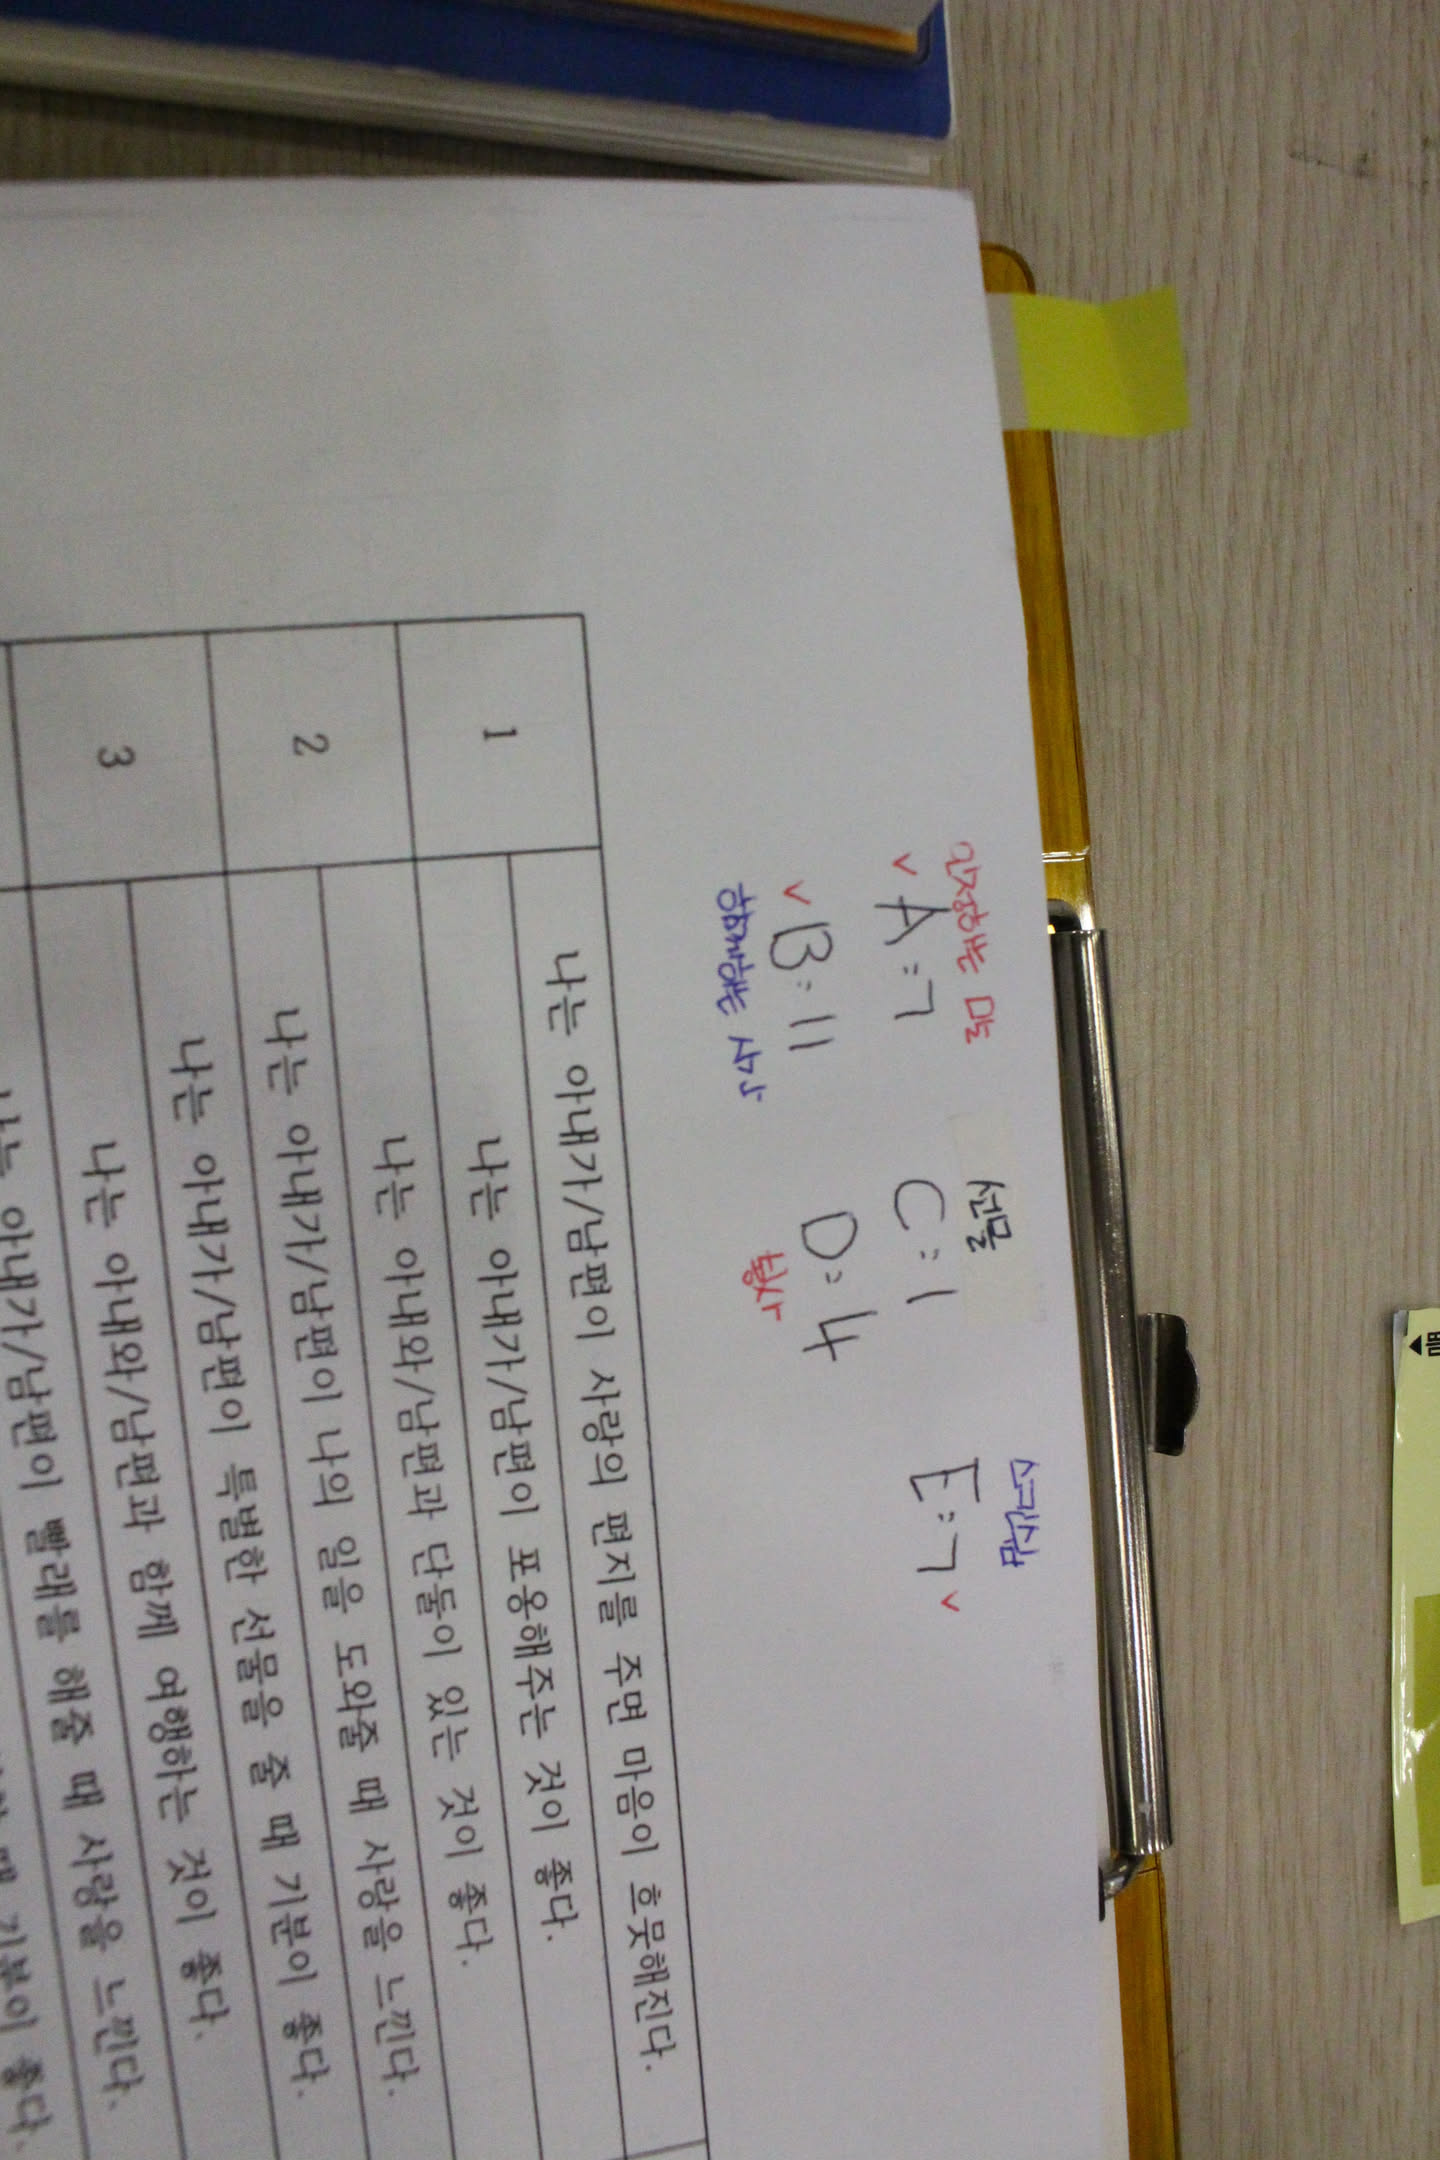 인정하는 말 선물 스킨십
v A:7 C:1 E:7 v
v B:11 D:4
함께하는 시간 봉사
1 나는 아내가/남편이 사랑의 편지를 주면 마음이 흐뭇해진다.
나는 아내가/남편이 포옹해주는 것이 좋다.
2 나는 아내와/남편과 단둘이 있는 것이 좋다.
나는 아내가/남편이 나의 일을 도와줄 때 사랑을 느낀다.
3 나는 아내가/남편이 특별한 선물을 줄 때 기분이 좋다.
나는 아내와/남편과 함께 여행하는 것이 좋다.
나는 아내가/남편이 빨래를 해줄 때 사랑을 느낀다.
때 기분이 좋다.